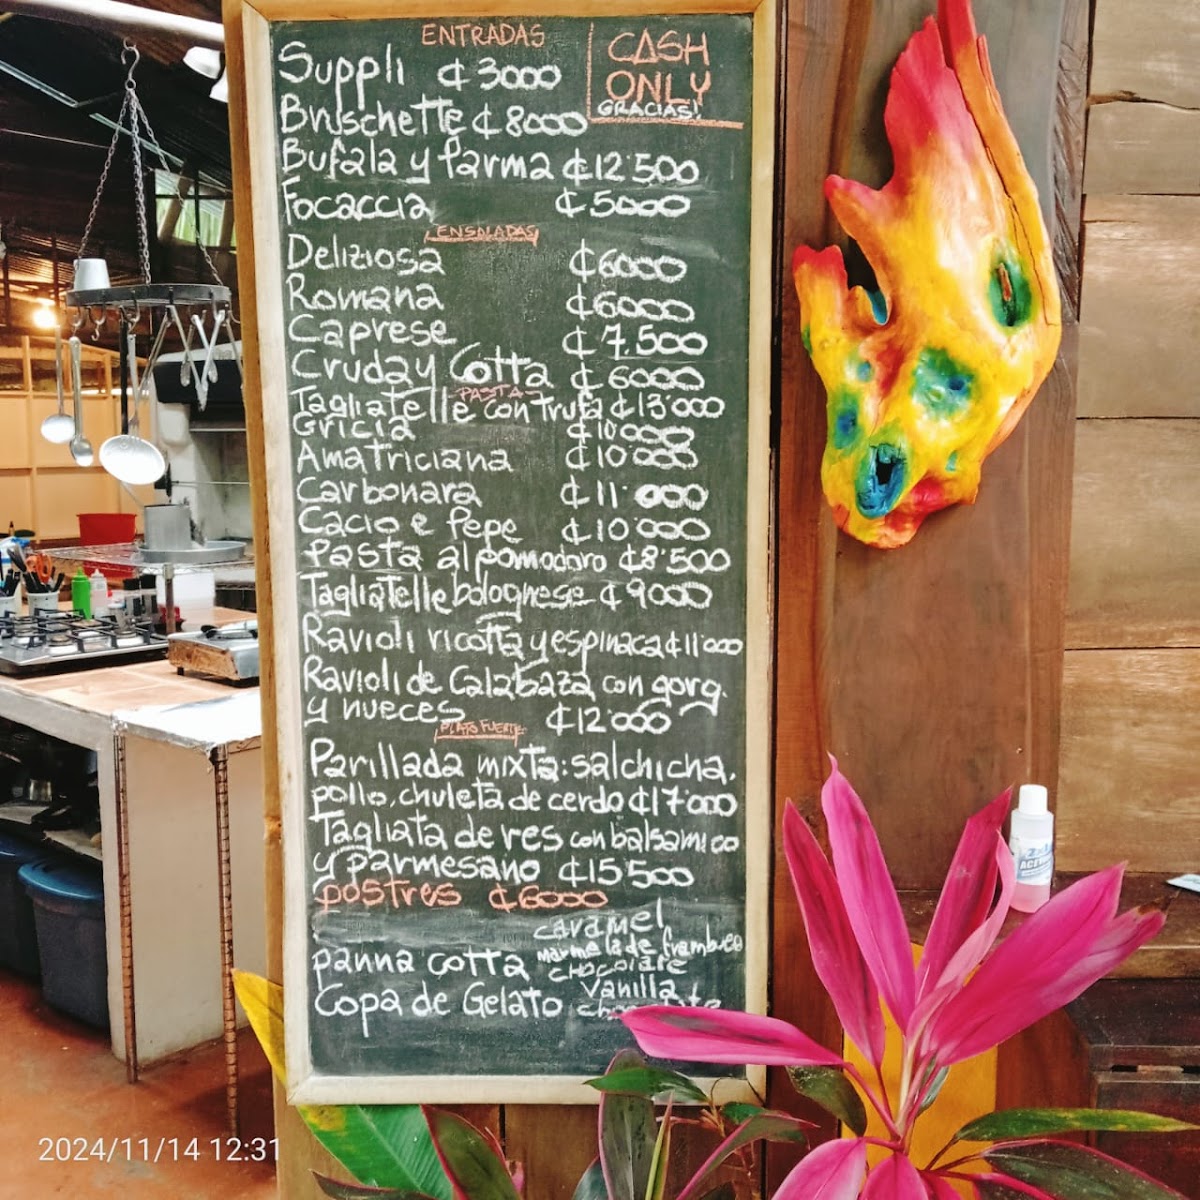 ENTRADAS
CASH
ONLY
GRACIAS!
Suppli ₡3000
Bruschette ₡8000
Bufala y Parma ₡12'500
Focaccia ₡5000
ENSALADAS
Deliziosa ₡6000
Romana ₡6000
Caprese ₡7.500
Cruda y Cotta ₡6000
PASTA
Tagliatelle con Trufa ₡13'000
Gricia ₡10'000
Amatriciana ₡10'000
Carbonara ₡11'000
Cacio e Pepe ₡10'000
Pasta al pomodoro ₡8'500
Tagliatelle bolognese ₡9000
Ravioli ricotta y espinaca ₡11'000
Ravioli de Calabaza con gorg.
y nueces ₡12'000
PLATO FUERTE
Parillada mixta: salchicha,
pollo, chuleta de cerdo ₡17'000
Tagliata de res con balsamico
y parmesano ₡15'500
postres ₡6000
caramel
marmelade
panna cotta chocolate
vanilla
Copa de Gelato
2024/11/14 12:31